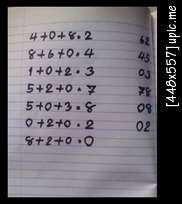 4+0+8.2 62
8+6+0.4 45
1+0+2.3 03
5+2+0.7 78
5+0+3.8 08
0+2+0.2 02
8+2+0.0
[448x557]upic.me